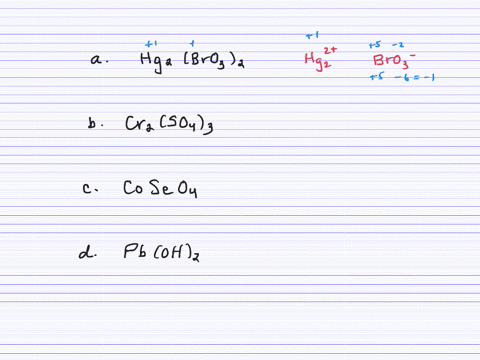 +1 + +1 +5 -2
a. Hg₂ (BrO₃)₂ Hg₂²⁺ BrO₃⁻
+5 -6 = -1
b. Cr₂(SO₄)₃
c. CoSeO₄
d. Pb(OH)₂